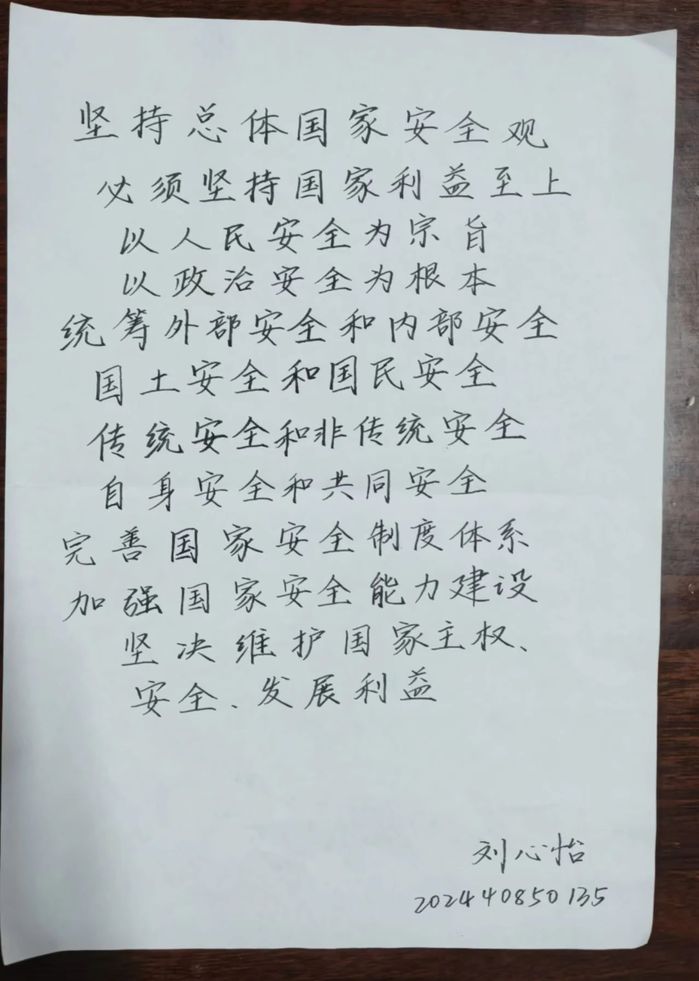 坚持总体国家安全观
必须坚持国家利益至上
以人民安全为宗旨
以政治安全为根本
统筹外部安全和内部安全
国土安全和国民安全
传统安全和非传统安全
自身安全和共同安全
完善国家安全制度体系
加强国家安全能力建设
坚决维护国家主权、
安全、发展利益
刘心怡
202440850135